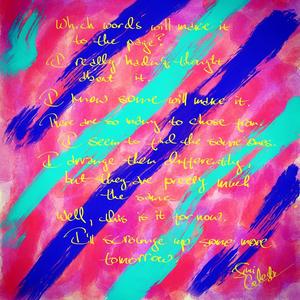 Which words will make it
to the page?
I really hadn't thought
about it.
I know some will make it.
There are so many to chose from.
I seem to find the same ones.
I arrange them differently,
but they are pretty much
the same
Well, this is it for now.
I'll scrounge up some more
tomorrow.
Celeste